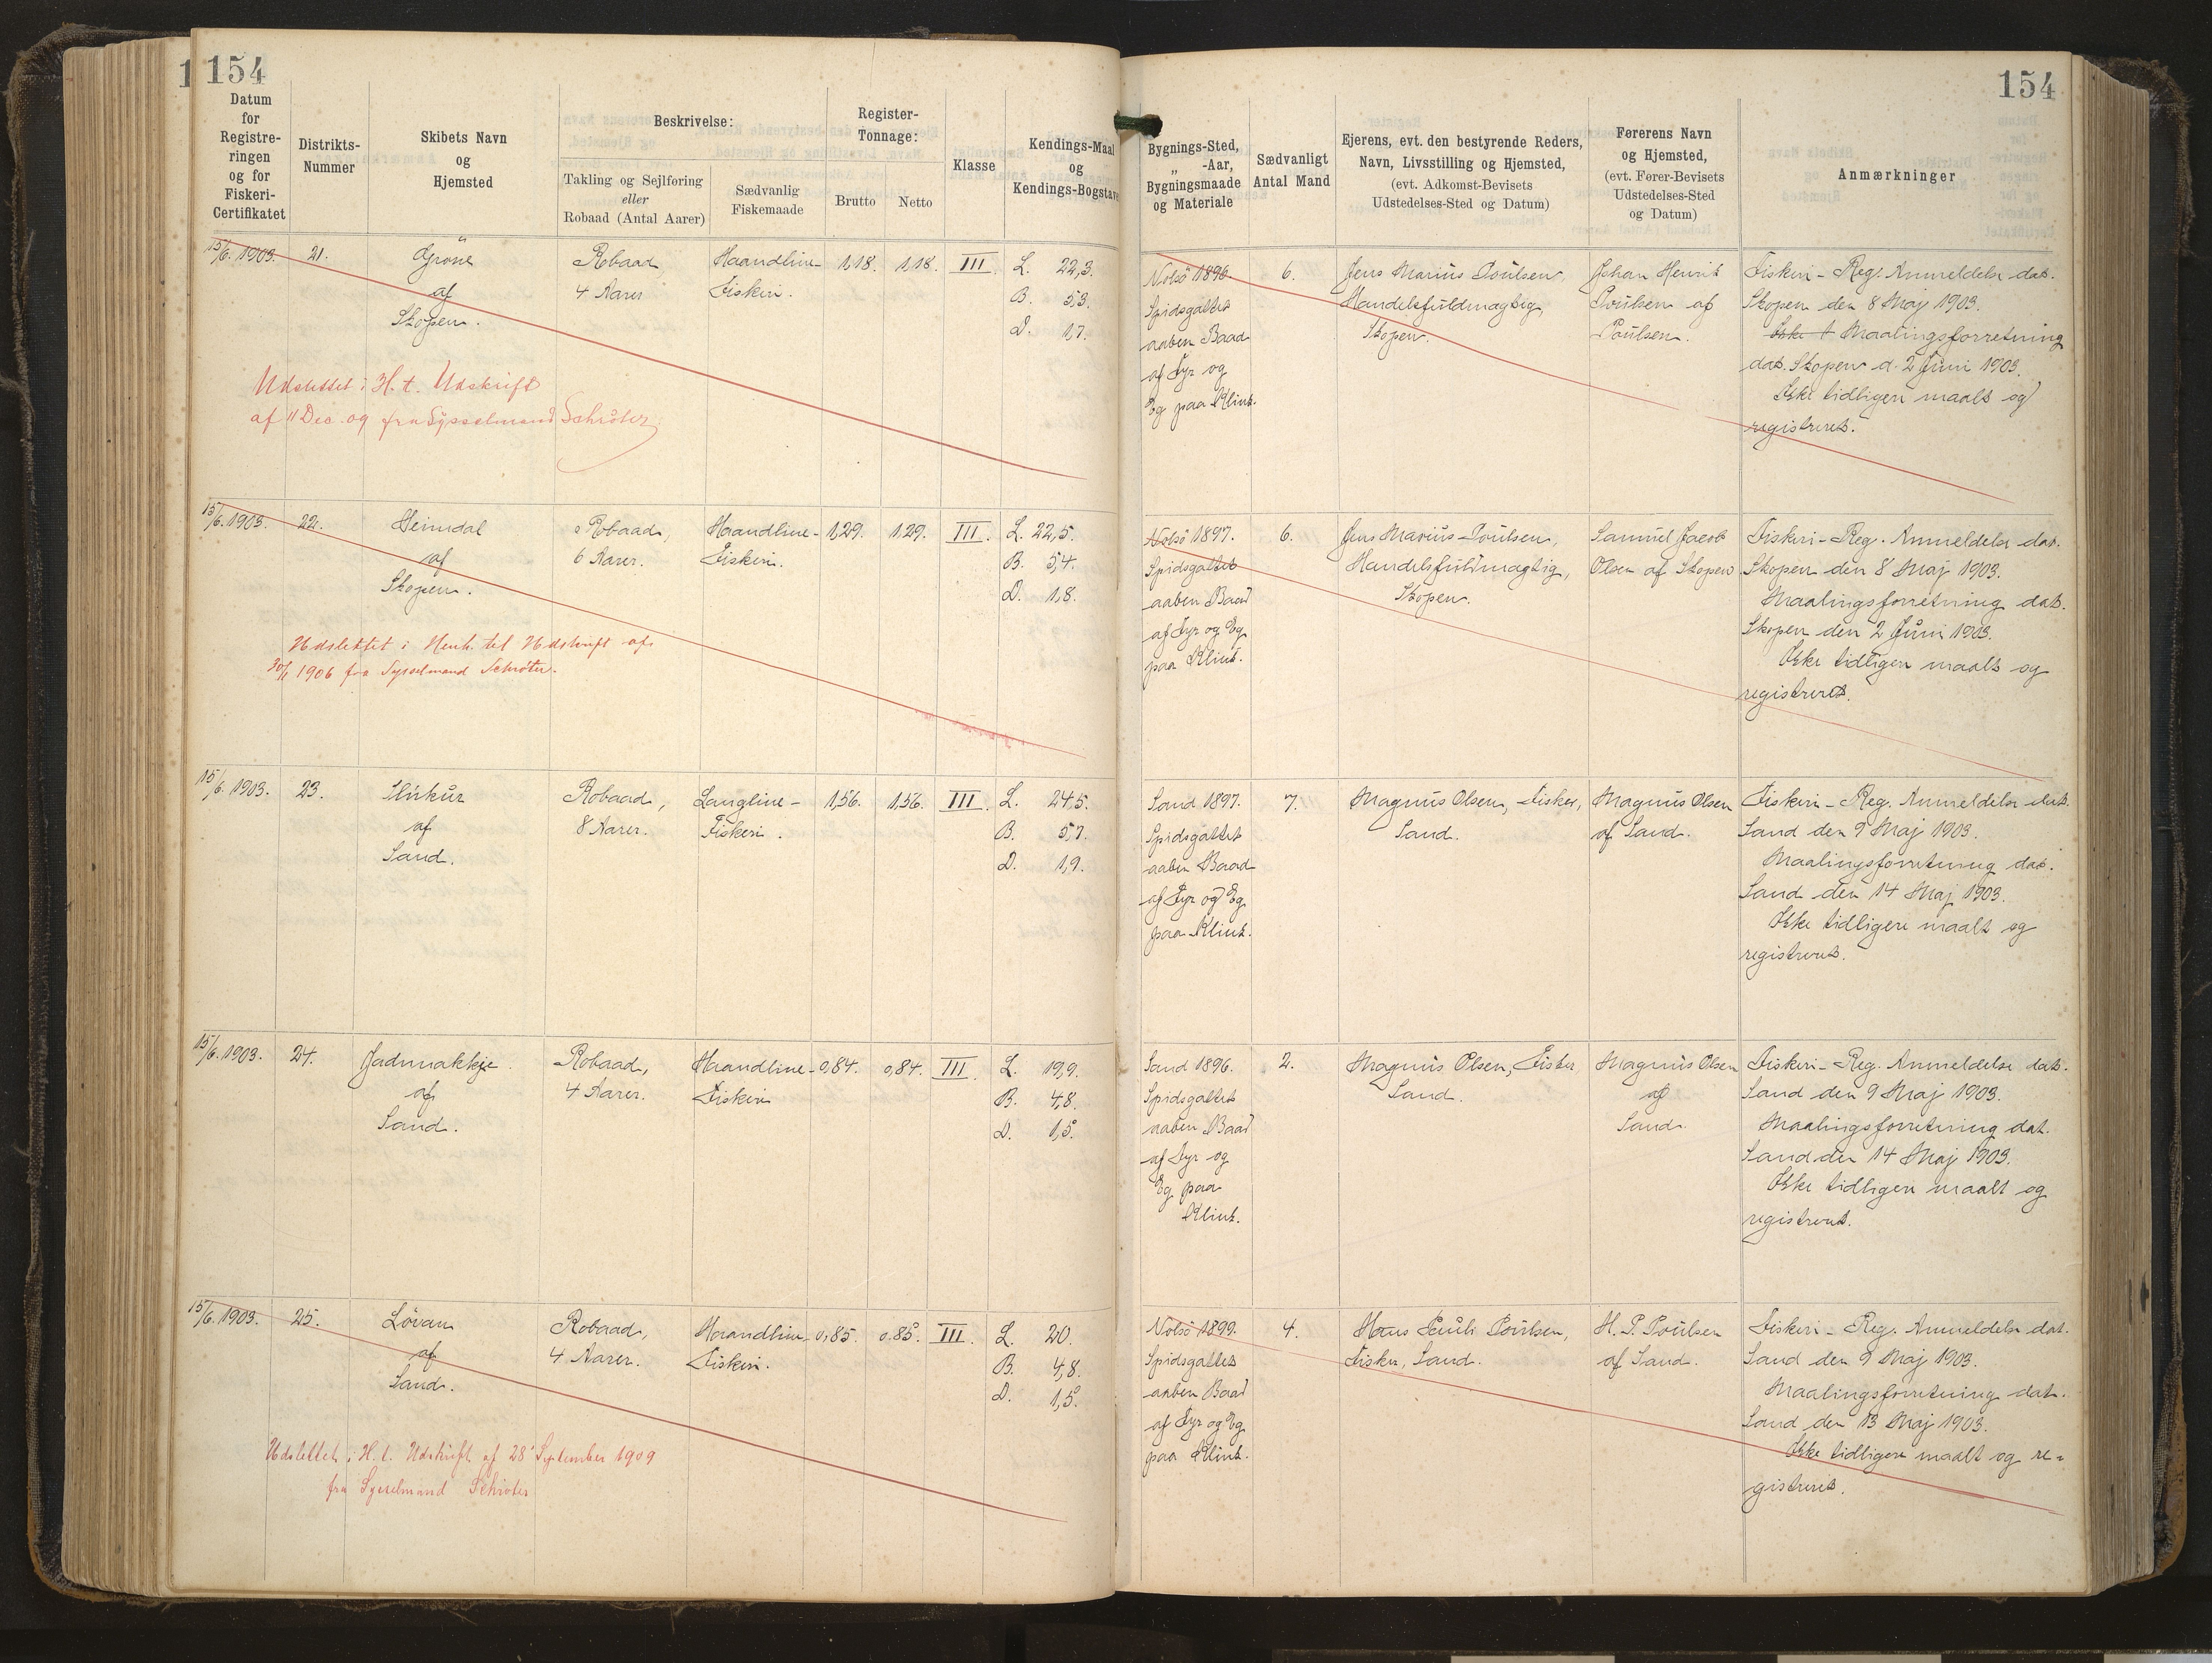 154
Datum
for
Registre-
ringen
og for
Fiskeri-
Certifikatet
Distrikts-
Nummer
Skibets Navn
og
Hjemsted
Beskrivelse:
Takling og Sejlføring
eller
Robaad (Antal Aarer)
Sædvanlig
Fiskemaade
Register-
Tonnage:
Brutto
Netto
Klasse
Kendings-Maal
og
Kendings-Bogstave
Bygnings-Sted,
„ -Aar,
Bygningsmaade
og Materiale
Sædvanligt
Antal Mand
Ejerens, evt. den bestyrende Reders,
Navn, Livsstilling og Hjemsted,
(evt. Adkomst-Bevisets
Udstedelses-Sted og Datum)
Førerens Navn
og Hjemsted,
(evt. Fører-Bevisets
Udstedelses-Sted
og Datum)
Anmærkninger
154
15/6. 1903.
21.
Grone
af
Skopen.
Robaad,
4 Aarer
Haandline-
Fiskeri.
1,18.
1,18.
III.
L. 22,3.
B. 5,3.
D. 1,7.
Nolsö 1896.
Spidsgattet
aaben Baad
af Fyr og
Eg paa Klink.
6.
Jens Marius Poulsen,
Handelsfuldmægtig,
Skopen.
Johan Henrik
Poulsen af
Poulsen.
Fiskeri-Reg. Anmeldelse dat.
Skopen den 8 Maj 1903.
Ikke t Maalingsforretning
dat. Skopen d. 2 Juni 1903.
Ikke tidligere maalt og
registreret.
Udslettet i H. t. Udskrift
af 11 Dec. 09 fra Sysselmand Schrøter.
15/6. 1903.
22.
Heimdal
af
Skopen.
Robaad,
6 Aarer.
Haandline-
Fiskeri.
1,29.
1,29.
III.
L. 22,5.
B. 5,4.
D. 1,8.
Nolsö 1897.
Spidsgattet
aaben Baad
af Fyr og Eg
paa Klink.
6.
Jens Marius Poulsen,
Handelsfuldmægtig,
Skopen.
Samuel Jacob
Olsen af Skopen
Fiskeri-Reg. Anmeldelse dat.
Skopen den 8 Maj 1903.
Maalingsforretning dat.
Skopen den 2 Juni 1903.
Ikke tidligere maalt og
registreret.
Udslettet i Henh. til Udskrift af
30/1 1906 fra Sysselmand Schrøter.
15/6. 1903.
23.
Slukur
af
Sand.
Robaad,
8 Aarer.
Langline-
Fiskeri.
1,56.
1,56.
III.
L. 24,5.
B. 5,7.
D. 1,9.
Sand 1897.
Spidsgattet
aaben Baad
af Fyr og Eg
paa Klink.
7.
Magnus Olsen, Fisker,
Sand.
Magnus Olsen
af Sand.
Fiskeri-Reg. Anmeldelse dat.
Sand den 9 Maj 1903.
Maalingsforretning dat.
Sand den 14 Maj 1903.
Ikke tidligere maalt og
registreret.
15/6. 1903.
24.
Jadmakkje.
af
Sand.
Robaad,
4 Aarer.
Haandline-
Fiskeri
0,84.
0,84.
III.
L. 19,9.
B. 4,8.
D. 1,5.
Sand 1896.
Spidsgattet
aaben Baad
af Fyr og
Eg paa
Klink.
2.
Magnus Olsen, Fisker,
Sand.
Magnus Olsen
af
Sand
Fiskeri-Reg. Anmeldelse dat.
Sand den 9 Maj 1903.
Maalingsforretning dat.
Sand den 14 Maj 1903.
Ikke tidligere maalt og
registreret.
15/6. 1903.
25.
Lövan
af
Sand.
Robaad,
4 Aarer.
Haandline-
Fiskeri.
0,85.
0,85.
III.
L. 20.
B. 4,8.
D. 1,5.
Nolsö 1899.
Spidsgattet
aaben Baad
af Fyr og Eg
paa Klink.
4.
Hans Pauli Poulsen,
Fisker, Sand.
H. P. Poulsen
af Sand.
Fiskeri-Reg. Anmeldelse dat.
Sand den 9 Maj 1903.
Maalingsforretning dat.
Sand den 13 Maj 1903.
Ikke tidligere maalt og re-
gistreret.
Udslettet i H. t. Udskrift af 28' September 1909
fra Sysselmand Schrøter